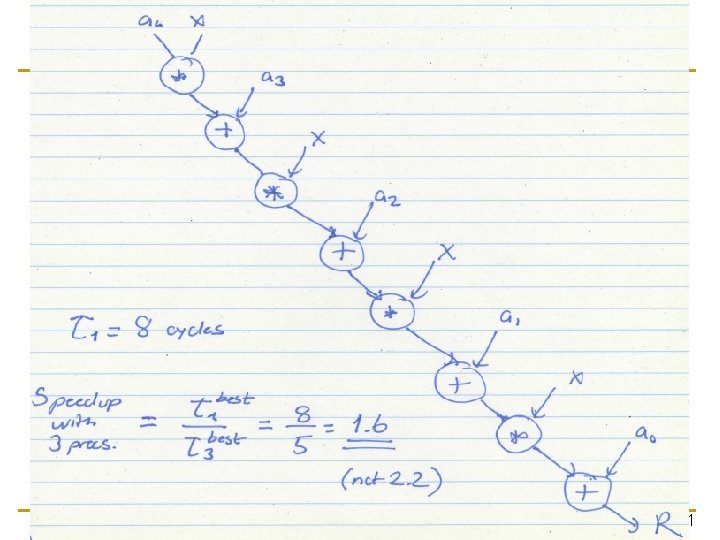 a₄ x
*
a₃
+
x
*
a₂
+
x
*
a₁
T₁ = 8 cycles
+
x
Speedup with 3 procs. = T₁^best / T₃^best = 8 / 5 = 1.6
*
a₀
(not 2.2)
+
R
1